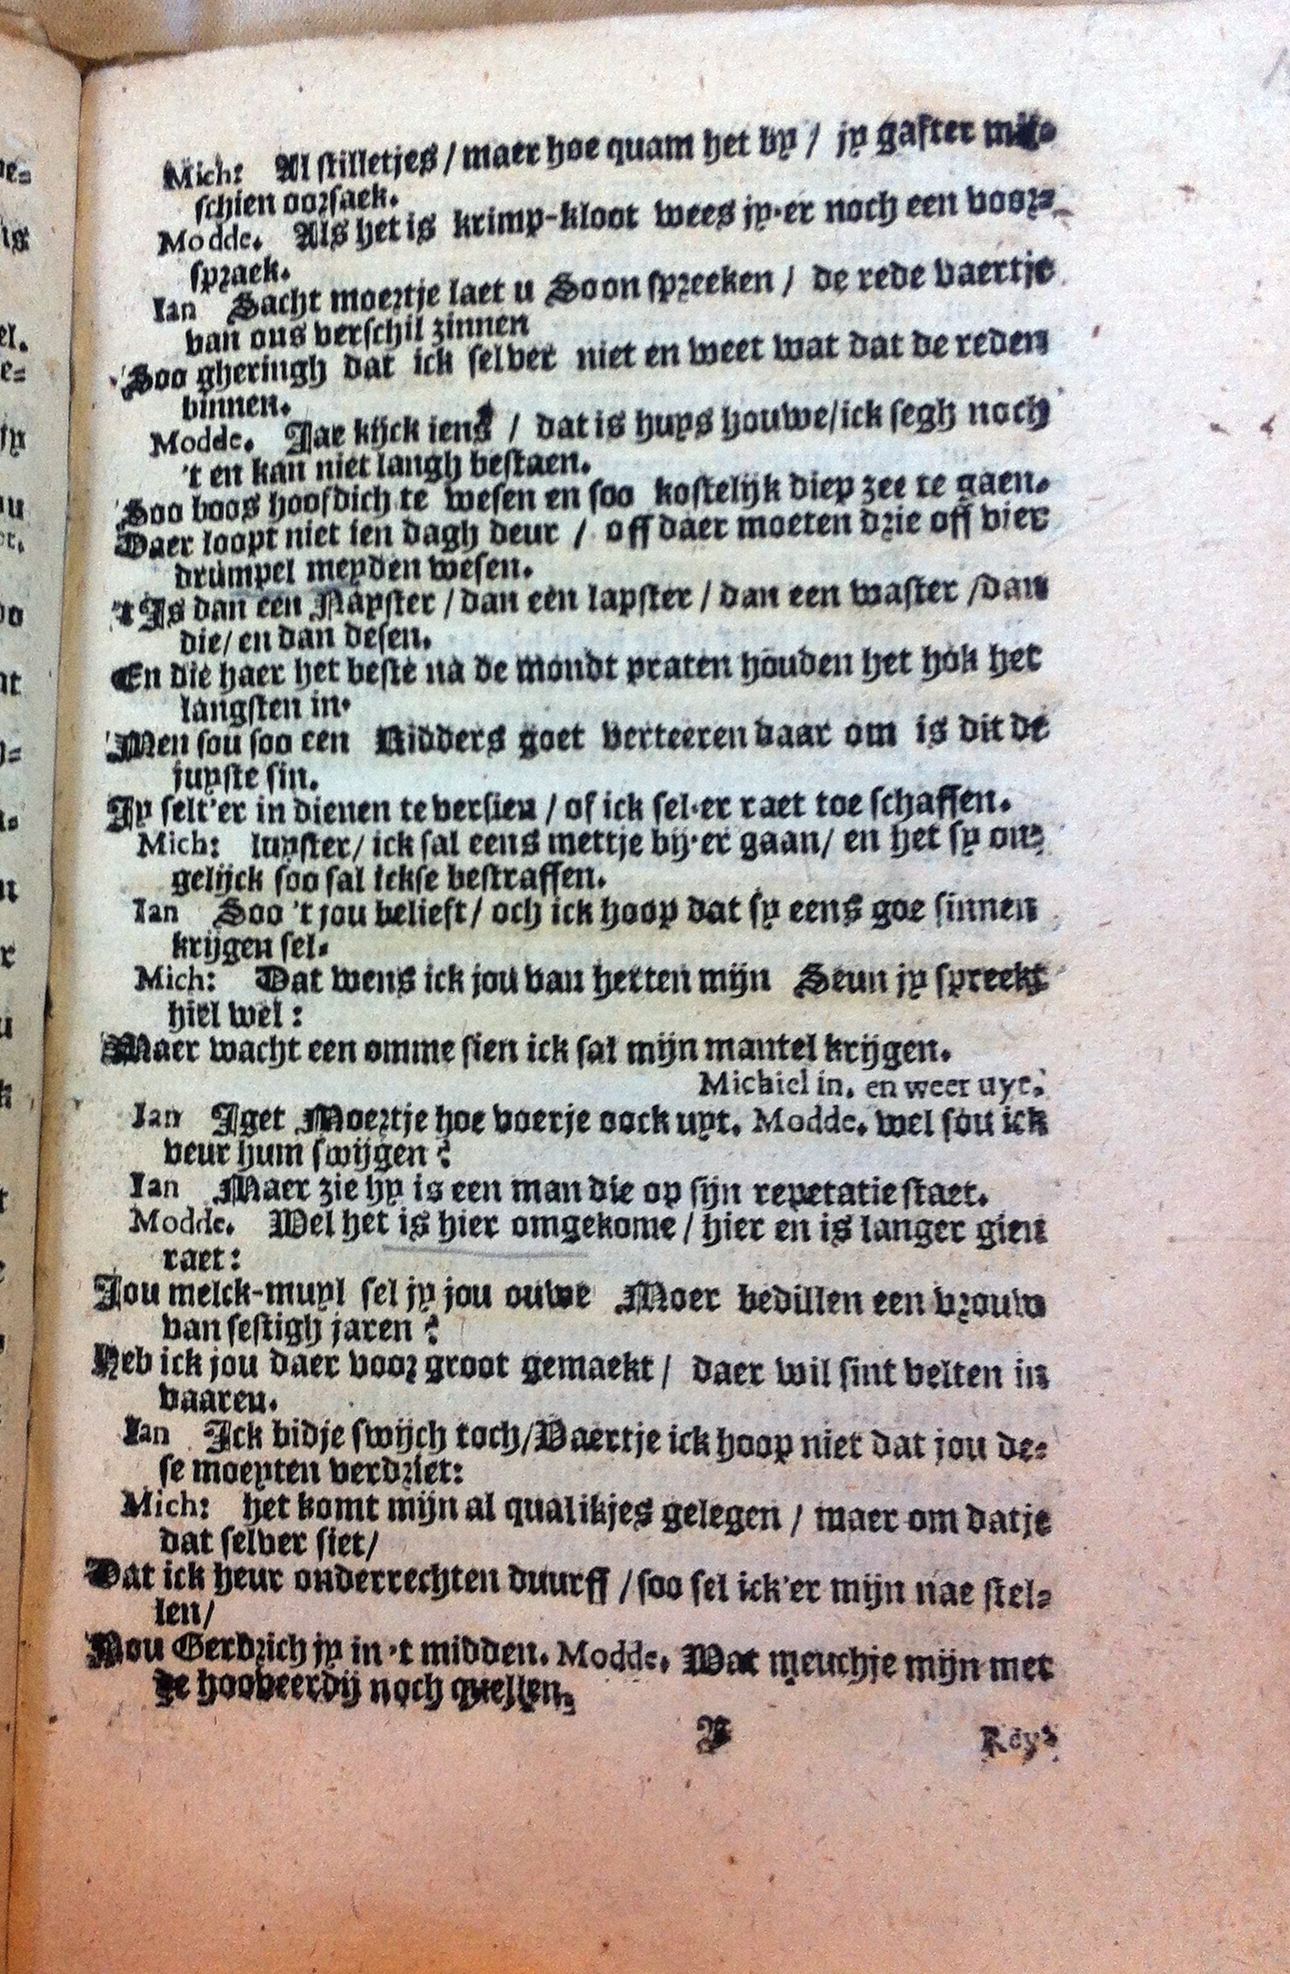 Mich: Al stilletjes / maer hoe quam het by / jy gafter mis-
schien oorsaek.
Modde. Als het is krimp-kloot wees jy'er noch een voor-
spraek.
Ian Sacht moertje laet u Soon spreeken / de rede vaertje
van ons verschil zinnen
Soo gheringh dat ick selver niet en weet wat dat de reden
binnen.
Modde. Jae kijck iens / dat is huys houwe/ick segh noch
't en kan niet langh bestaen.
Soo boos hoofdich te wesen en soo kostelijk diep zee te gaen.
Daer loopt niet ien dagh deur / off daer moeten drie off vier
drumpel meyden wesen.
't Is dan een Nayster / dan een lapster / dan een waster / dan
die/ en dan desen.
En die haer het beste na de mondt praten houden het hok het
langsten in.
Men sou soo een Ridders goet verteeren daar om is dit de
juyste sin.
Jy selt'er in dienen te versien / of ick sel'er raet toe schaffen.
Mich: luyster/ ick sal eens mettje bij'er gaan/ en het sy on-
gelijck soo sal ickse bestraffen.
Ian Soo 't jou belieft/ och ick hoop dat sy eens goe sinnen
krijgen sel.
Mich: Dat wens ick jou van herten mijn Seun jy spreekt
hiel wel:
Maer wacht een omme sien ick sal mijn mantel krijgen.
Michiel in. en weer uyt.
Ian Iget Moertje hoe voerje oock uyt. Modde. wel sou ick
veur hum swijgen?
Ian Maer zie hy is een man die op sijn repetatie staet.
Modde. Wel het is hier omgekome / hier en is langer gien
raet:
Jou melck-muyl sel jy jou ouwe Moer bedillen een vrouw
van sestigh jaren?
Heb ick jou daer voor groot gemaekt / daer wil sint velten in
vaaren.
Ian Ick bidje swijch toch/Vaertje ick hoop niet dat jou de-
se moeyten verdriet:
Mich: het komt mijn al qualikjes gelegen / maer om datje
dat selver siet/
Dat ick heur onderrechten duurff / soo sel ick'er mijn nae stel-
len/
Nou Gerdrich jy in 't midden. Modde. Wat meuchje mijn met
de hooveerdij noch quellen.
B Rey-